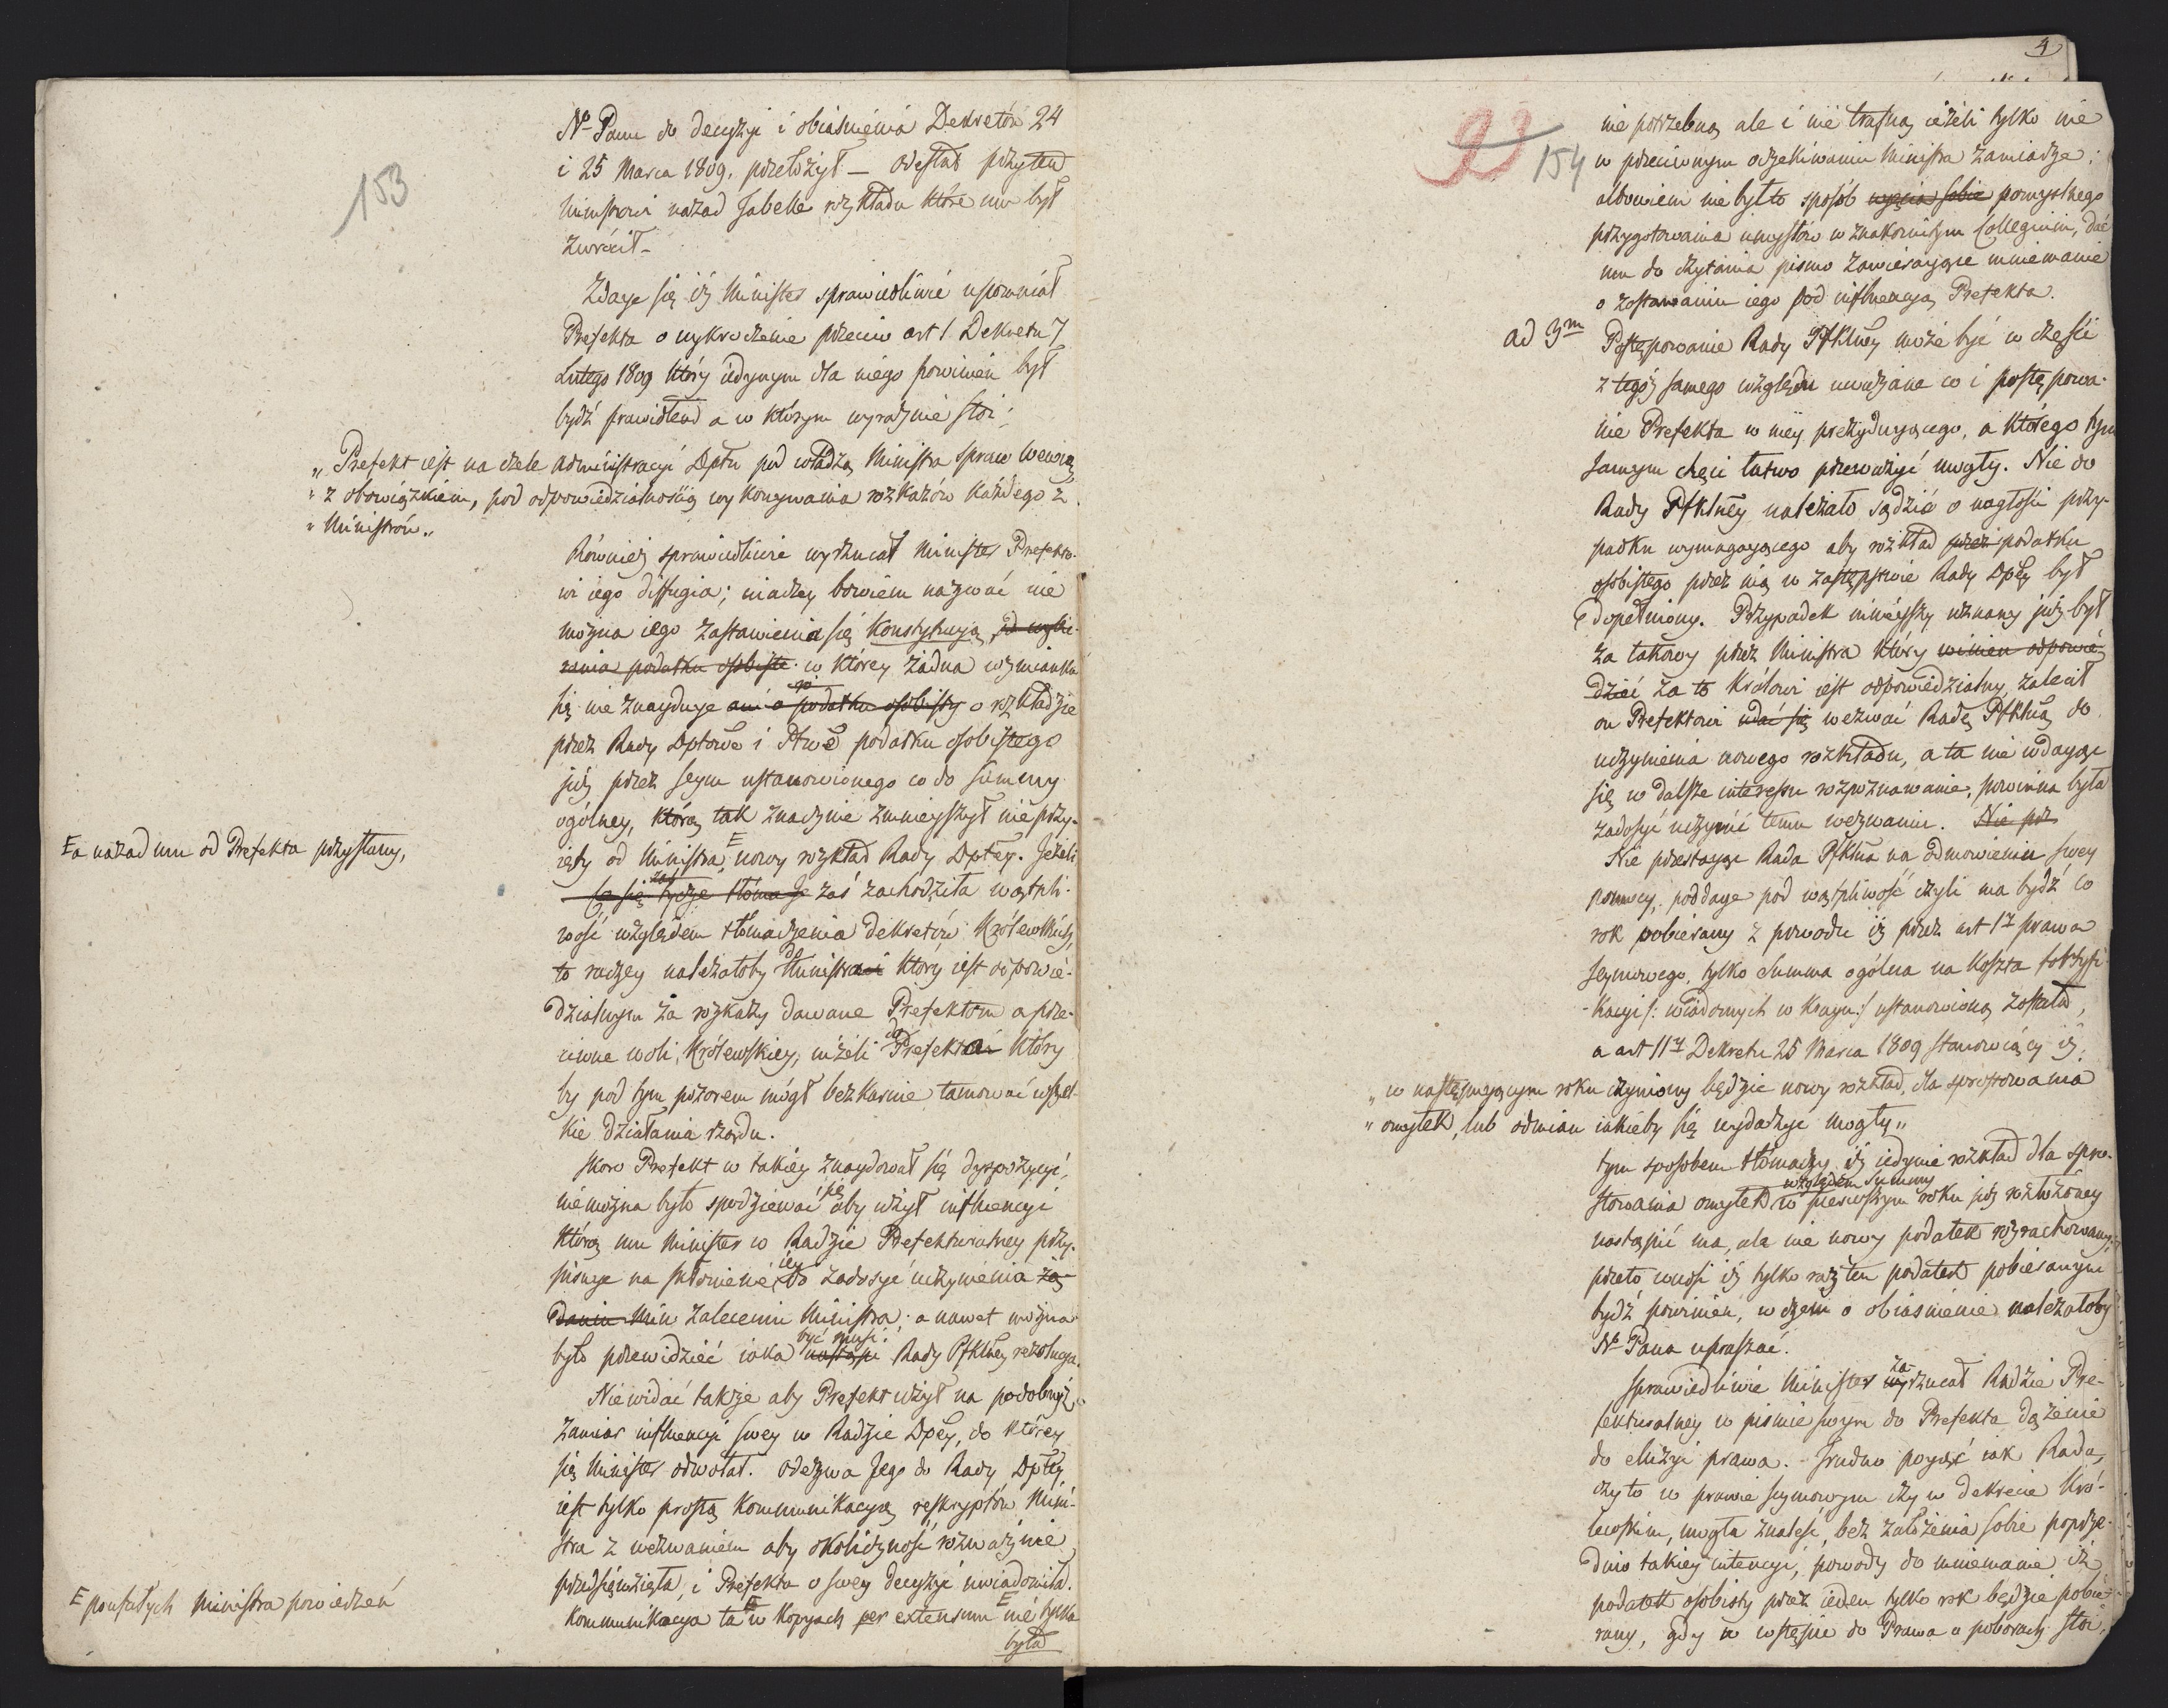 153
Nº Panu do decyzyi i obiaśnienia Dekretów 24
i 25 Marca 1809. przełożył — odesłał przytem
Ministrowi nazad Tabelle rozkładu które mu był
zwrócił –
Zdaje się iż Minister sprawiedliwie upomniał
Prefekta o wykroczenie przeciw art 1 Dekretu 7
Lutego 1809 który iedynym dla niego powinien był
bydź prawidłem a w którym wyraźnie stoi;
„Prefekt iest na czele Administracyi Dpttu pod władzą Ministra Spraw Wewnę
„z obowiązkiem, pod odpowiedzialnością wykonywania rozkazów każdego z
„Ministrów„
Również sprawiedliwie wyrzucał Minister Prefekto-
wi iego diffugia; inaczey bowiem nazwać nie
można iego zastawienia się Konstytucyą,
rania podatku osobiste w którey żadna wzmianka
się nie znayduje ani o podatku osobisty o rozkładzie
przez Rady Dptowe i Ptwe podatku osobistego
już przez Seym ustanowionego co do summy
ogólney, którą tak znacznie zmnieyszył nieprzy-
ięty od Ministra, E nowy rozkład Rady Dptey. Jeżeli
E a nazad mu od Prefekta przysłany,
Co się tycze zaś zachodziła wątpli-
wość względem tłómaczenia dekretów Królewskich,
to raczey należałoby do Ministra który iest odpowie-
dzialnym za rozkazy dawane Prefektom a prze-
ciwne woli Królewskiey, niżeli do Prefekta który
by pod tym pozorem mógł bezkarnie tamować wszel-
kie działania rządu.
Skoro Prefekt w takiey znaydował się dyspozycyi,
niemożna było spodziewać się aby użył influencyi
którą mu Minister w Radzie Prefekturalney przy-
pisuje na skłonienie iey do zadosyć uczynienia żą
daniu Min zaleceniu Ministra; a nawet można
było przewidzieć iaka być musi nastąpi Rady Pfktney rezolucya.
Niewidać także aby Prefekt użył na podobnyż
zamiar influencyi swey w Radzie Dptey, do którey
się Minister odwołał. Odezwa Jego do Rady Dptey
iest tylko prostą kommunikacyą reskryptów Mini-
stra z wezwaniem aby okoliczność rozważnie
przedsięwzięła, i Prefekta o swey decyzyi uwiadomiła.
Kommunikacya ta w kopyach per extensum E nie tylko
E poufałych Ministra powiedzeń
była
4
154
nie potrzebną ale i nie trafną ieżeli tylko nie
w przeciwnym oczekiwaniu Ministra zamiarze;
albowiem nie był to sposób wzięcia sobie pomyślnego
przygotowania umysłów w znakomitym Collegium, dać
mu do czytania pismo zawieraiące mniemanie
o zostawaniu iego pod influencyą Prefekta.
ad 3m Postępowanie Rady Pfktney może być w części
z tegoż samego względu uważane co i postępowa-
nie Prefekta w niey prezyduiącego, a którego tym
samym chęci łatwo przeważyć mogły. Nie do
Rady Pfktney należało sądzić o nagłości przy-
padku wymagaiącego aby rozkład przez podatku
osobistego przez nią w zastępstwie Rady Dptey był
dopełniony. Przypadek ninieyszy uznany już był
za takowy przez Ministra który winien odpowie-
dzieć za to Królowi iest odpowiedzialny, zalecił
on Prefektowi udać się wezwać Radę Pfktną do
uczynienia nowego rozkładu, a ta nie wdaiąc
się w dalsze interessu rozpoznawanie, powinna była
zadosyć uczynić temu wezwaniu. Nie prz
Nie przestaiąc Rada Pfktna na odmówieniu swey
pomocy, poddaje pod wątpliwość czyli ma bydź co
rok pobierany z powodu iż przez art 1y prawa
Seymowego, tylko Summa ogólna na koszta fortyfi-
kacyi /: wiadomych w Kraju :/ ustanowioną została,
a art 11y Dekretu 25 Marca 1809 stanowiący iż.
„w następuiącym roku czyniony będzie nowy rozkład, dla sprostowania
„omyłek, lub odmian iakieby się wydarzyć mogły„
tym sposobem tłómaczy iż iedynie rozkład dla spro-
stowania omyłek względem Summy w pierwszym roku już rozłożoney
nastąpić ma, ale nie nowy podatek rozrachowany;
przeto wnosi iż tylko raz ten podatek pobieranym
bydź powinien, w czem o obiaśnienie należałoby
Nº Pana upraszać.
Sprawiedliwie Minister wy za rzucał Radzie Pre-
fekturalney w pismie swym do Prefekta dążenie
do eluzyi prawa. Trudno pojąć iak Rada,
czy to w prawie seymowym czy w dekrecie Kró-
lewskim, mogła znaleść, bez założenia sobie poprze-
dnio takiey intencyi, powody do mniemania iż
podatek osobisty przez ieden tylko rok będzie pobie-
rany, gdy w wstępie do Prawa o poborach stoi,